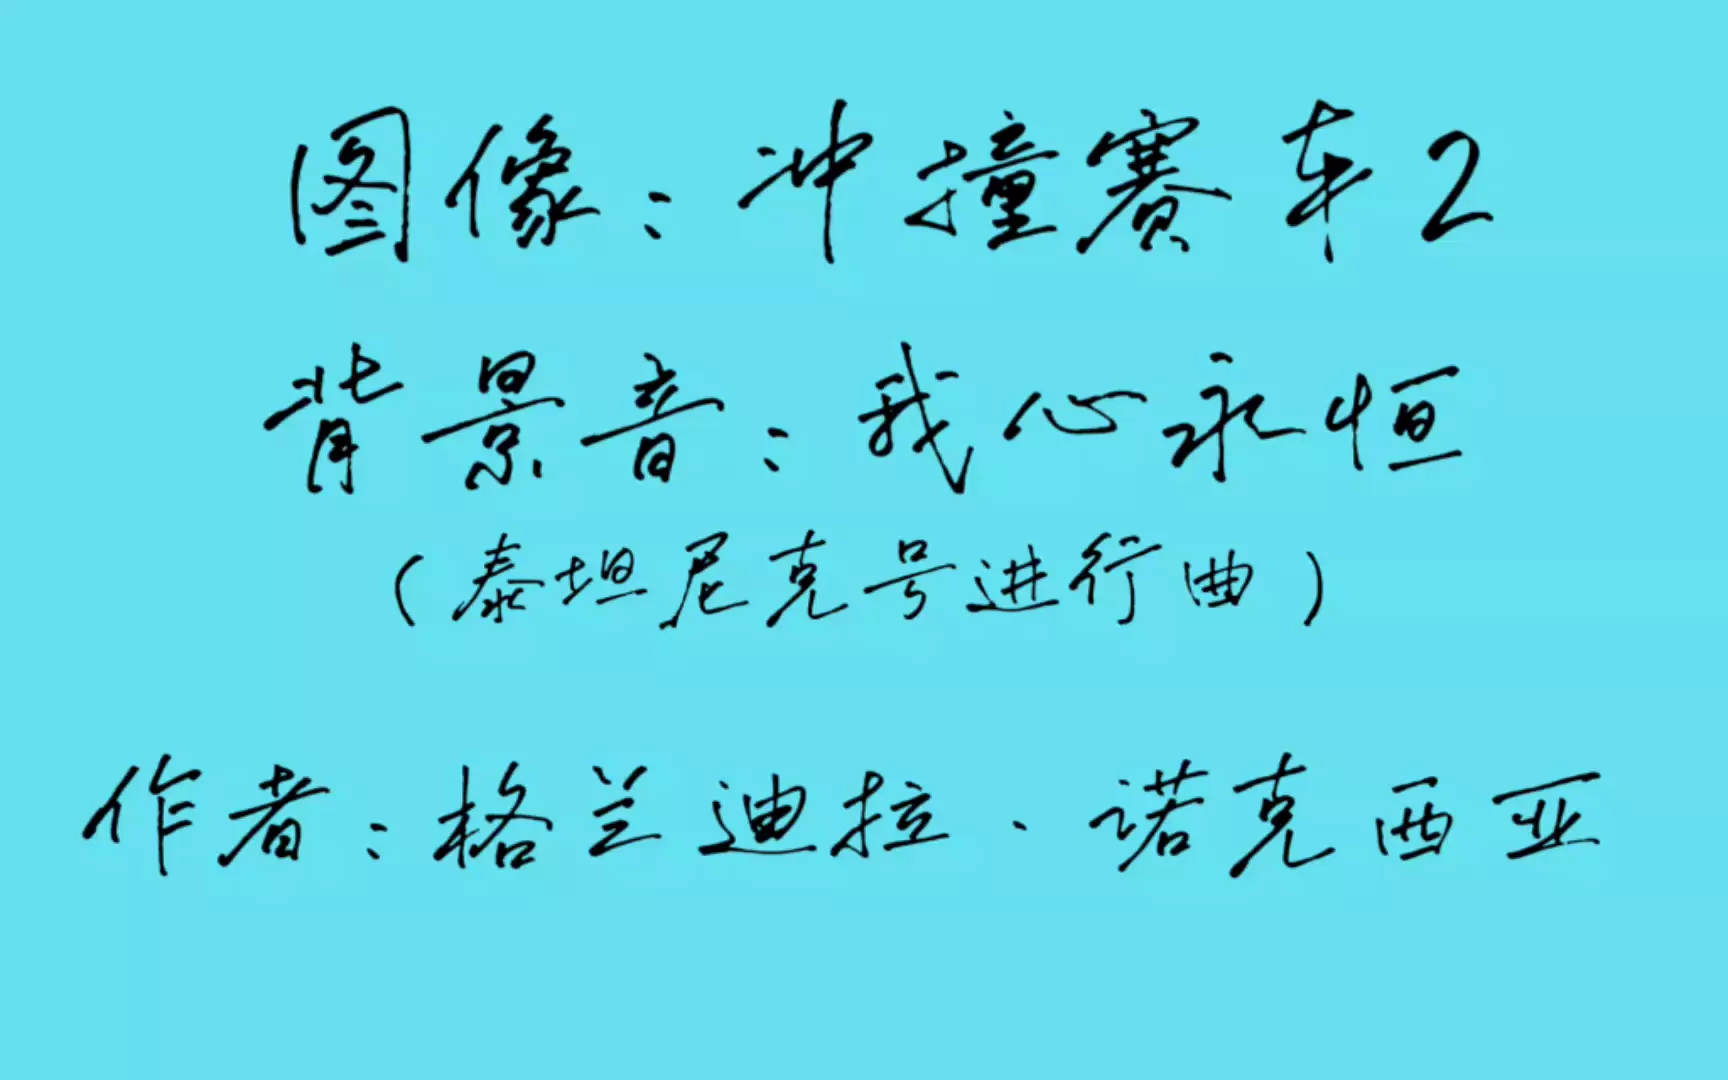 图像：冲撞赛车2
背景音：我心永恒
（泰坦尼克号进行曲）
作者：格兰迪拉·诺克西亚